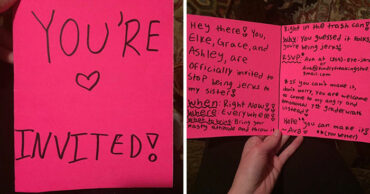 YOU'RE
INVITED!
Hey there! You,
Elke, Grace, and
Ashley, are
officially invited to
stop being jerks to
my sister!
When: Right Now!!
Where: Everywhere!
What to bring: Bring your
nasty attitude and throw it
Right in the trash can!
Why: You guessed it folks,
you're being jerks!
RSVP: Ava at
*If you can't make it,
don't worry, you are welcome
to come to my angry and
7th grade wrath
instead!
Hope you can make it!
-Ava